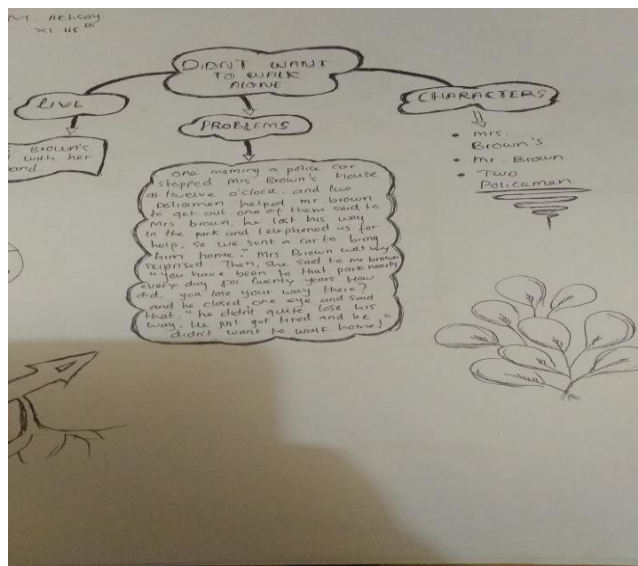 M. Akhsay
XI
DIDN'T WANT
TO WALK
ALONE
LIVE
Brown's
with her
PROBLEMS
One morning a police car
stopped Mrs Brown's House
at twelve o'clock. and two
Policaman helped mr. brown
to get out one of them said to
Mrs. brown, he lost his way
in the park and telephoned us for
help, so we sent a car to bring
him home." Mrs. Brown was very
surprised Then, she said to mr brown
"you have been to that park nearly
every day for twenty years How
did you lose your way there?
and he closed one eye and said
that, "he didn't quite lose his
way. He just got tired and he
didn't want to walk home!"
CHARACTERS
• Mrs.
Brown's
• Mr. Brown
• Two
Policaman